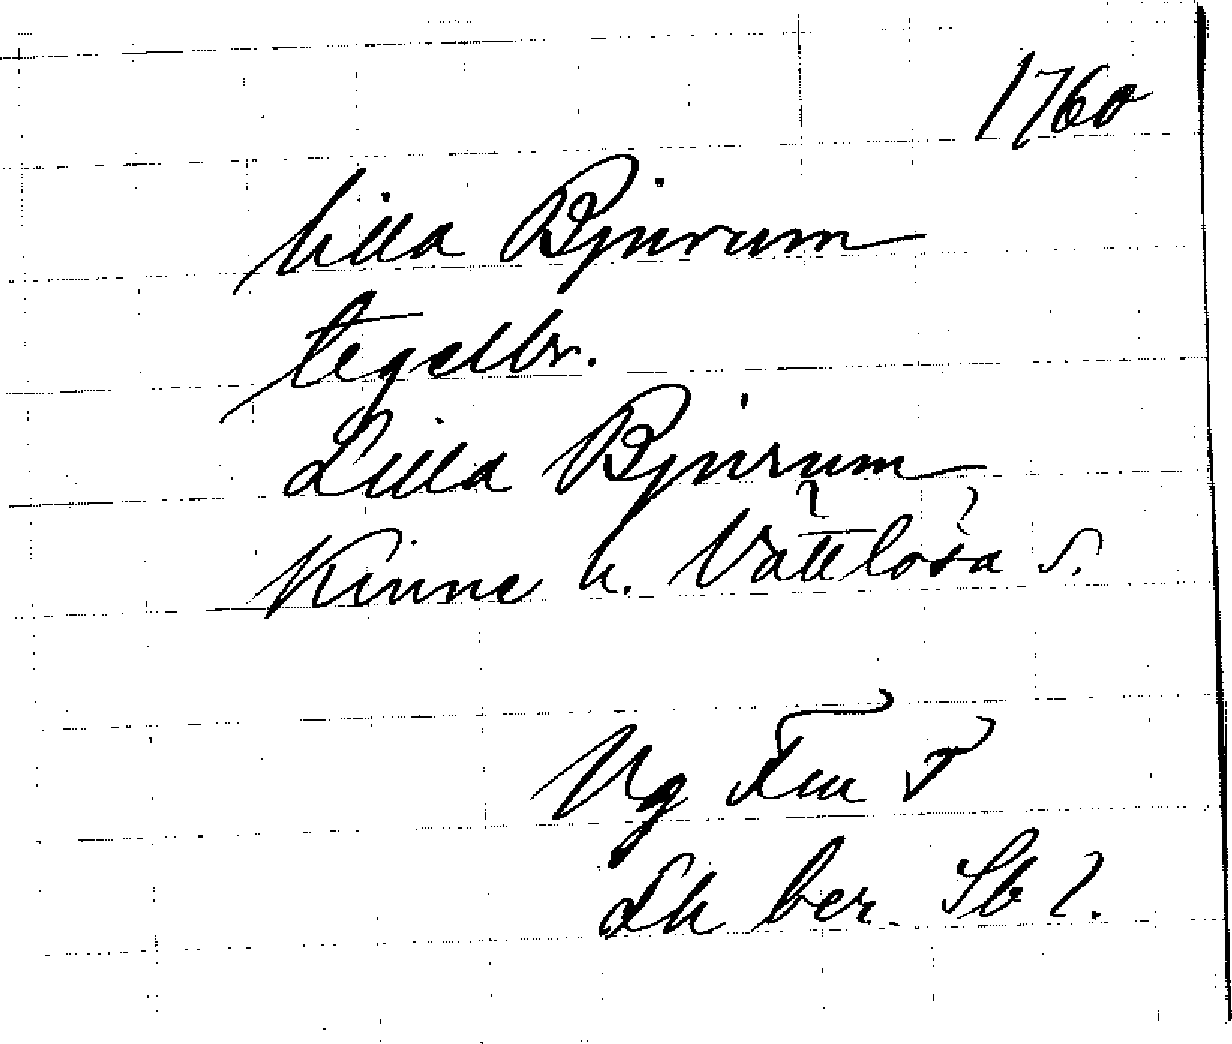 1760
Lilla Bjurum
tegelbr.
Lilla Bjurum
Kinne h. Vättlösa s.
Vg Fm T
Lh ber. Sb 2.